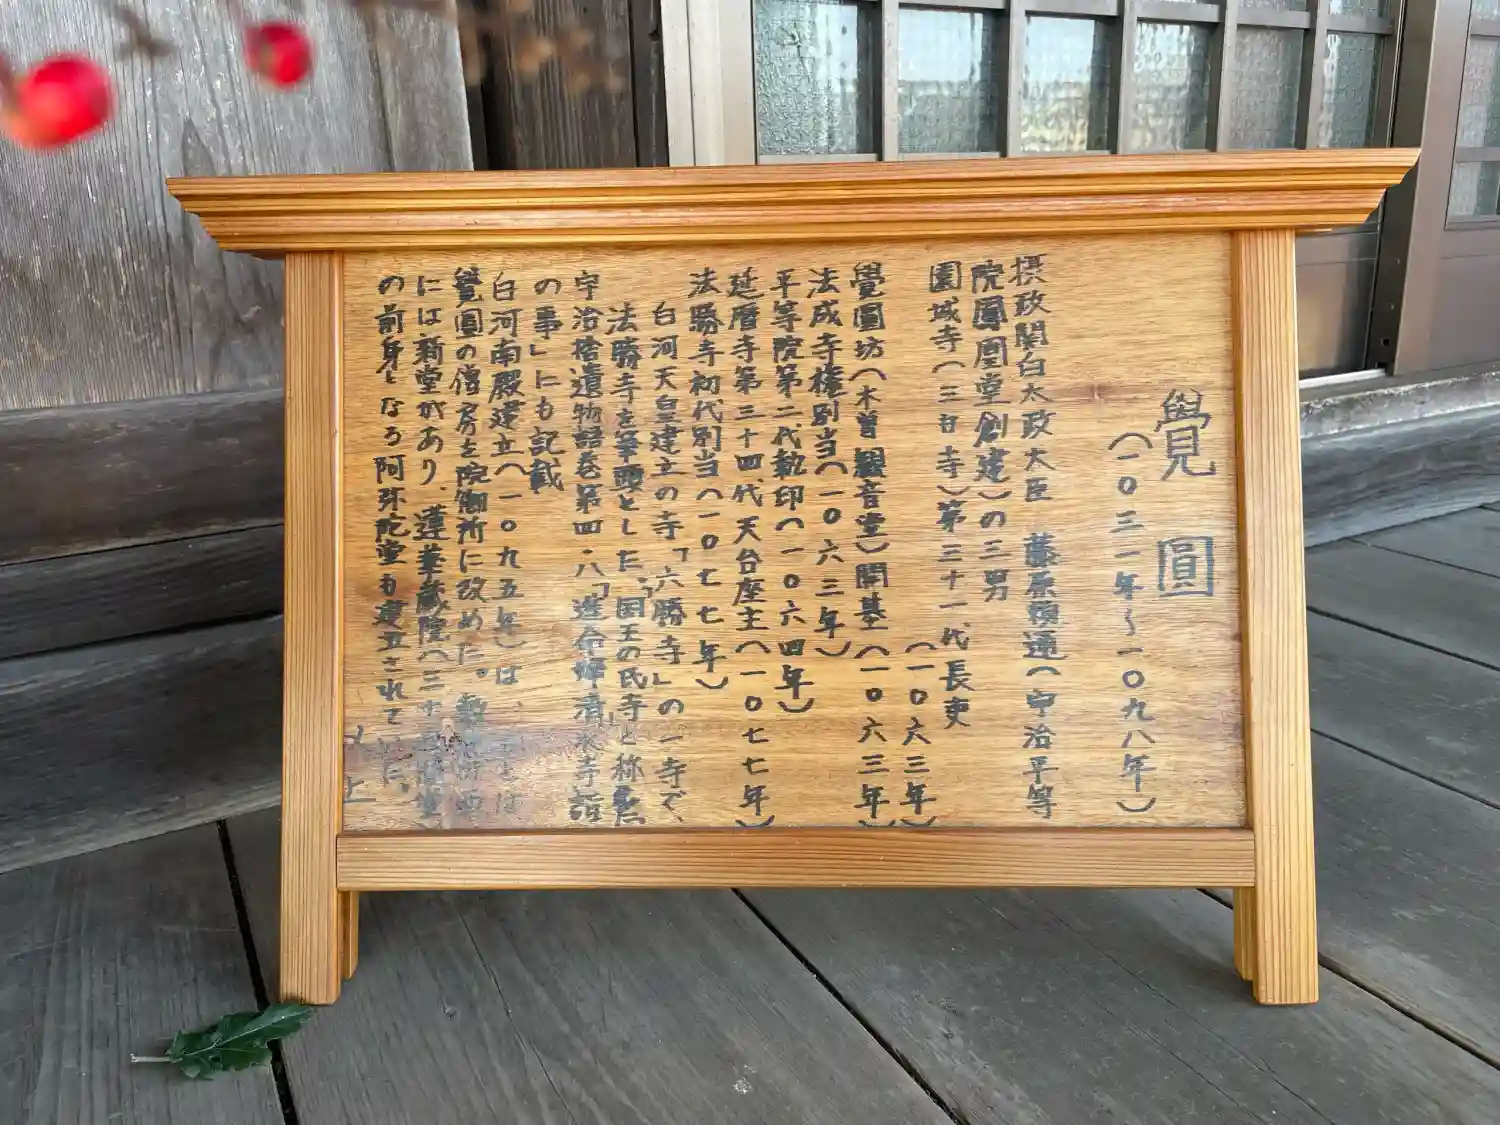 覺圓
(一〇三一年〜一〇九八年)
摂政関白太政大臣　藤原頼通(宇治平等
院鳳凰堂創建)の三男
園城寺(三井寺)第三十一代長吏
(一〇六三年)
覺圓坊(木曽観音堂)開基(一〇六三年)
法成寺権別当(一〇六三年)
平等院第二代執印(一〇六四年)
延暦寺第三十四代天台座主(一〇七七年)
法勝寺初代別当(一〇七七年)
白河天皇建立の寺「六勝寺」の一寺で、
法勝寺を筆頭とした、「国王の氏寺」と称
宇治拾遺物語巻第四・八「進命婦清水寺詣
の事」にも記載
白河南殿建立(一〇九五年)は、
覺圓の僧房を院御所に改めた。
には新堂があり、蓮華蔵院(三十三間堂)
の前身となる阿弥陀堂も建立されていた。
以上